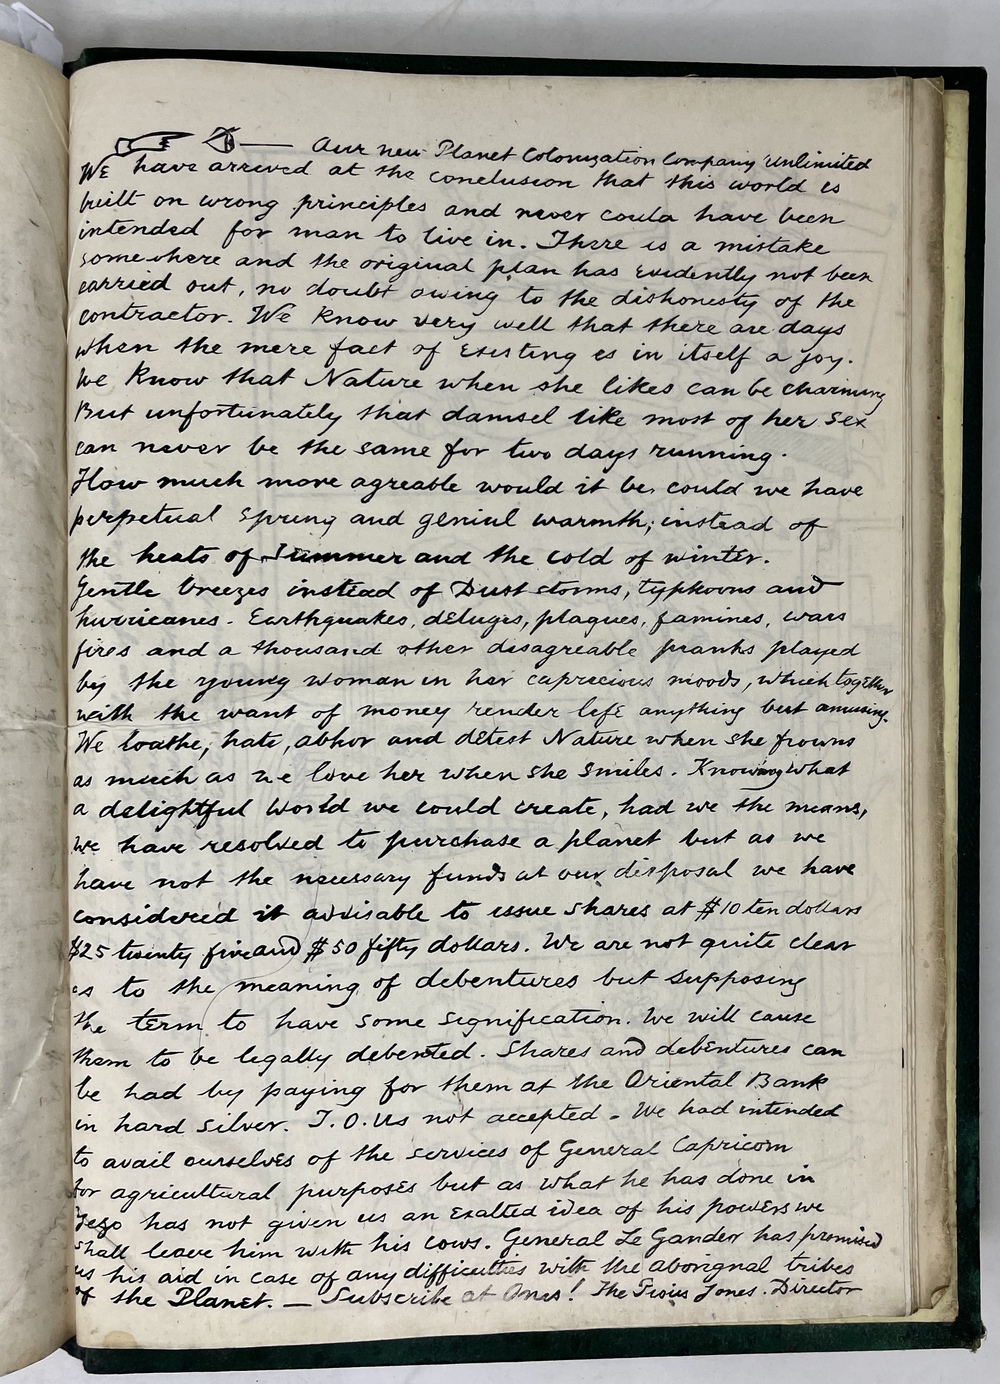 Our new Planet Colonization Company Unlimited
We have arrived at the conclusion that this world is
built on wrong principles and never could have been
intended for man to live in. There is a mistake
somewhere and the original plan has evidently not been
carried out, no doubt owing to the dishonesty of the
contractor. We know very well that there are days
when the mere fact of Existing is in itself a joy.
We know that Nature when she likes can be charming
But unfortunately that damsel like most of her sex
can never be the same for two days running.
How much more agreable would it be, could we have
perpetual Spring and genial warmth; instead of
the heats of Summer and the cold of winter.
Gentle breezes instead of Dust storms, typhoons and
hurricanes - Earthquakes, deluges, plagues, famines, wars
fires and a thousand other disagreable pranks played
by the young woman in her capricious moods, which together
with the want of money render life anything but amusing.
We loathe, hate, abhor and detest Nature when she frowns
as much as we love her when she smiles. Knowing what
a delightful World we could create, had we the means,
we have resolved to purchase a planet but as we
have not the necessary funds at our disposal we have
considered it advisable to issue shares at $10 ten dollars
$25 twenty five and $50 fifty dollars. We are not quite clear
as to the meaning of debentures but supposing
the term to have some signification. We will cause
them to be legally debented. Shares and debentures can
be had by paying for them at the Oriental Bank
in hard silver. I.O.Us not accepted - We had intended
to avail ourselves of the services of General Capricorn
for agricultural purposes but as what he has done in
Yezo has not given us an exalted idea of his powers we
shall leave him with his cows. General Le Gander has promised
us his aid in case of any difficulties with the aborignal tribes
of the Planet. — Subscribe at Once! The Pious Jones. Director